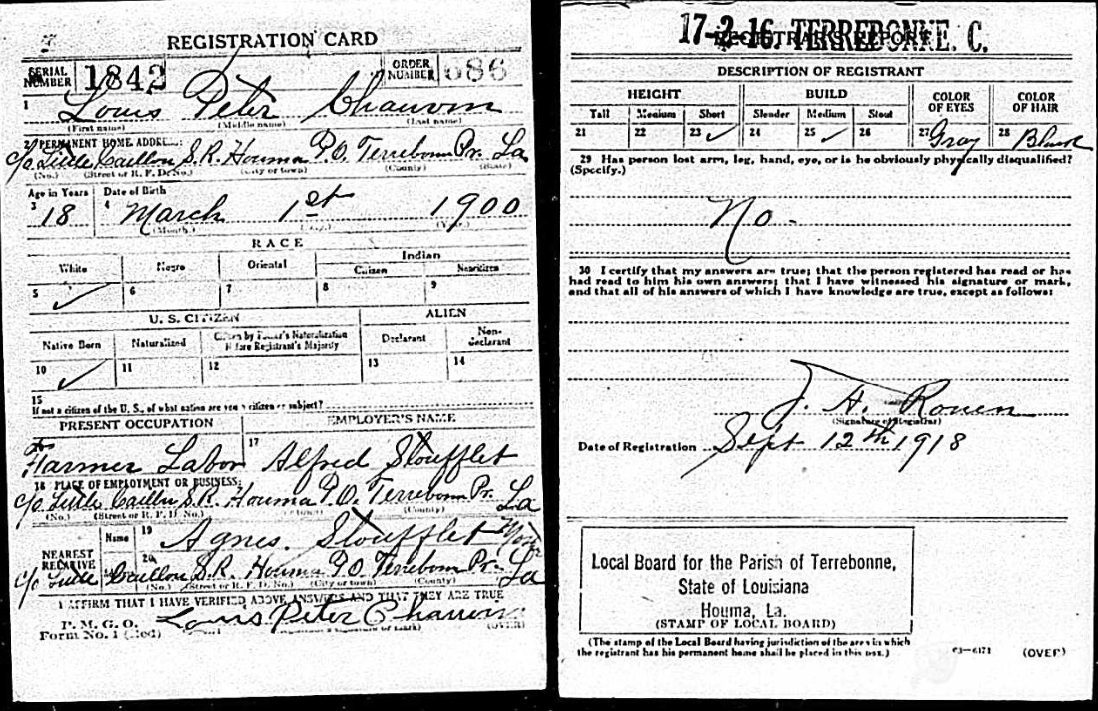 REGISTRATION CARD
SERIAL NUMBER 1842 ORDER NUMBER 686
1 Louis Peter Chauvin
(First name) (Middle name) (Last name)
2 PERMANENT HOME ADDRESS:
c/o Little Caillou S.R. Houma P.O. Terrebonn Pr. La
(No.) (Street or R. F. D. No.) (City or town) (County) (State)
Age in Years Date of Birth
3 18 4 March 1st 1900
(Month.) (Day.) (Year.)
RACE
White Negro Oriental Indian
Citizen Noncitizen
5 ✓ 6 7 8 9
U. S. CITIZEN ALIEN
Native Born Naturalized Citizen by Father's Naturalization Before Registrant's Majority Declarant Non-declarant
10 ✓ 11 12 13 14
15
If not a citizen of the U. S., of what nation are you a citizen or subject?
PRESENT OCCUPATION EMPLOYER'S NAME
16 Farmer Labor 17 Alfred Stoufflet
18 PLACE OF EMPLOYMENT OR BUSINESS:
c/o Little Caillou S.R. Houma P.O. Terrebonn Pr. La
(No.) (Street or R. F. D. No.) (County)
NEAREST RELATIVE Name 19 Agnes Stoufflet
20
c/o Little Caillou S.R. Houma P.O. Terrebonn Pr. La
(No.) (Street or R. F. D. No.) (City or town) (County)
I AFFIRM THAT I HAVE VERIFIED ABOVE ANSWERS AND THAT THEY ARE TRUE
P. M. G. O.
Form No. 1 (Red) Louis Peter Chauvin (OVER)
17-2-16. TERREBONNE. C.
REGISTRAR'S REPORT
DESCRIPTION OF REGISTRANT
HEIGHT BUILD COLOR OF EYES COLOR OF HAIR
Tall Medium Short Slender Medium Stout
21 22 23 ✓ 24 25 ✓ 26 27 Gray 28 Black
29 Has person lost arm, leg, hand, eye, or is he obviously physically disqualified?
(Specify.)
No -
30 I certify that my answers are true; that the person registered has read or has
had read to him his own answers; that I have witnessed his signature or mark,
and that all of his answers of which I have knowledge are true, except as follows:
(Signature of Registrar)
Date of Registration Sept 12th 1918
Local Board for the Parish of Terrebonne,
State of Louisiana
Houma, La.
(STAMP OF LOCAL BOARD)
(The stamp of the Local Board having jurisdiction of the area in which
the registrant has his permanent home shall be placed in this box.)
03—6171 (OVER)